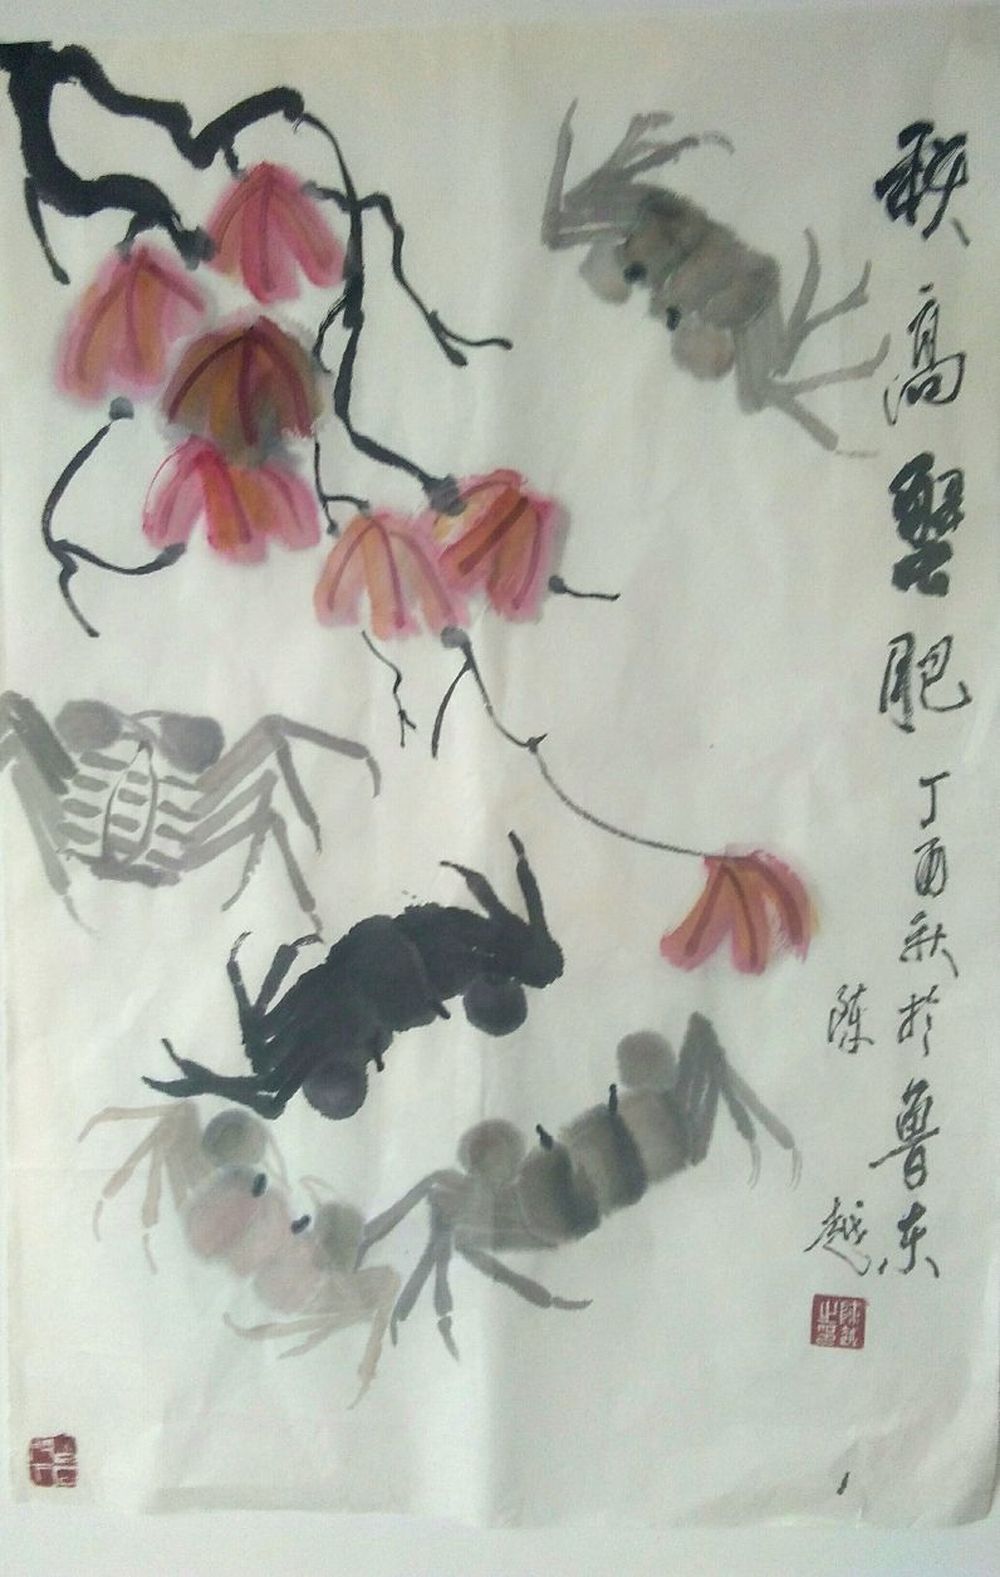 秋高蟹肥 丁酉秋於鲁东
陈越